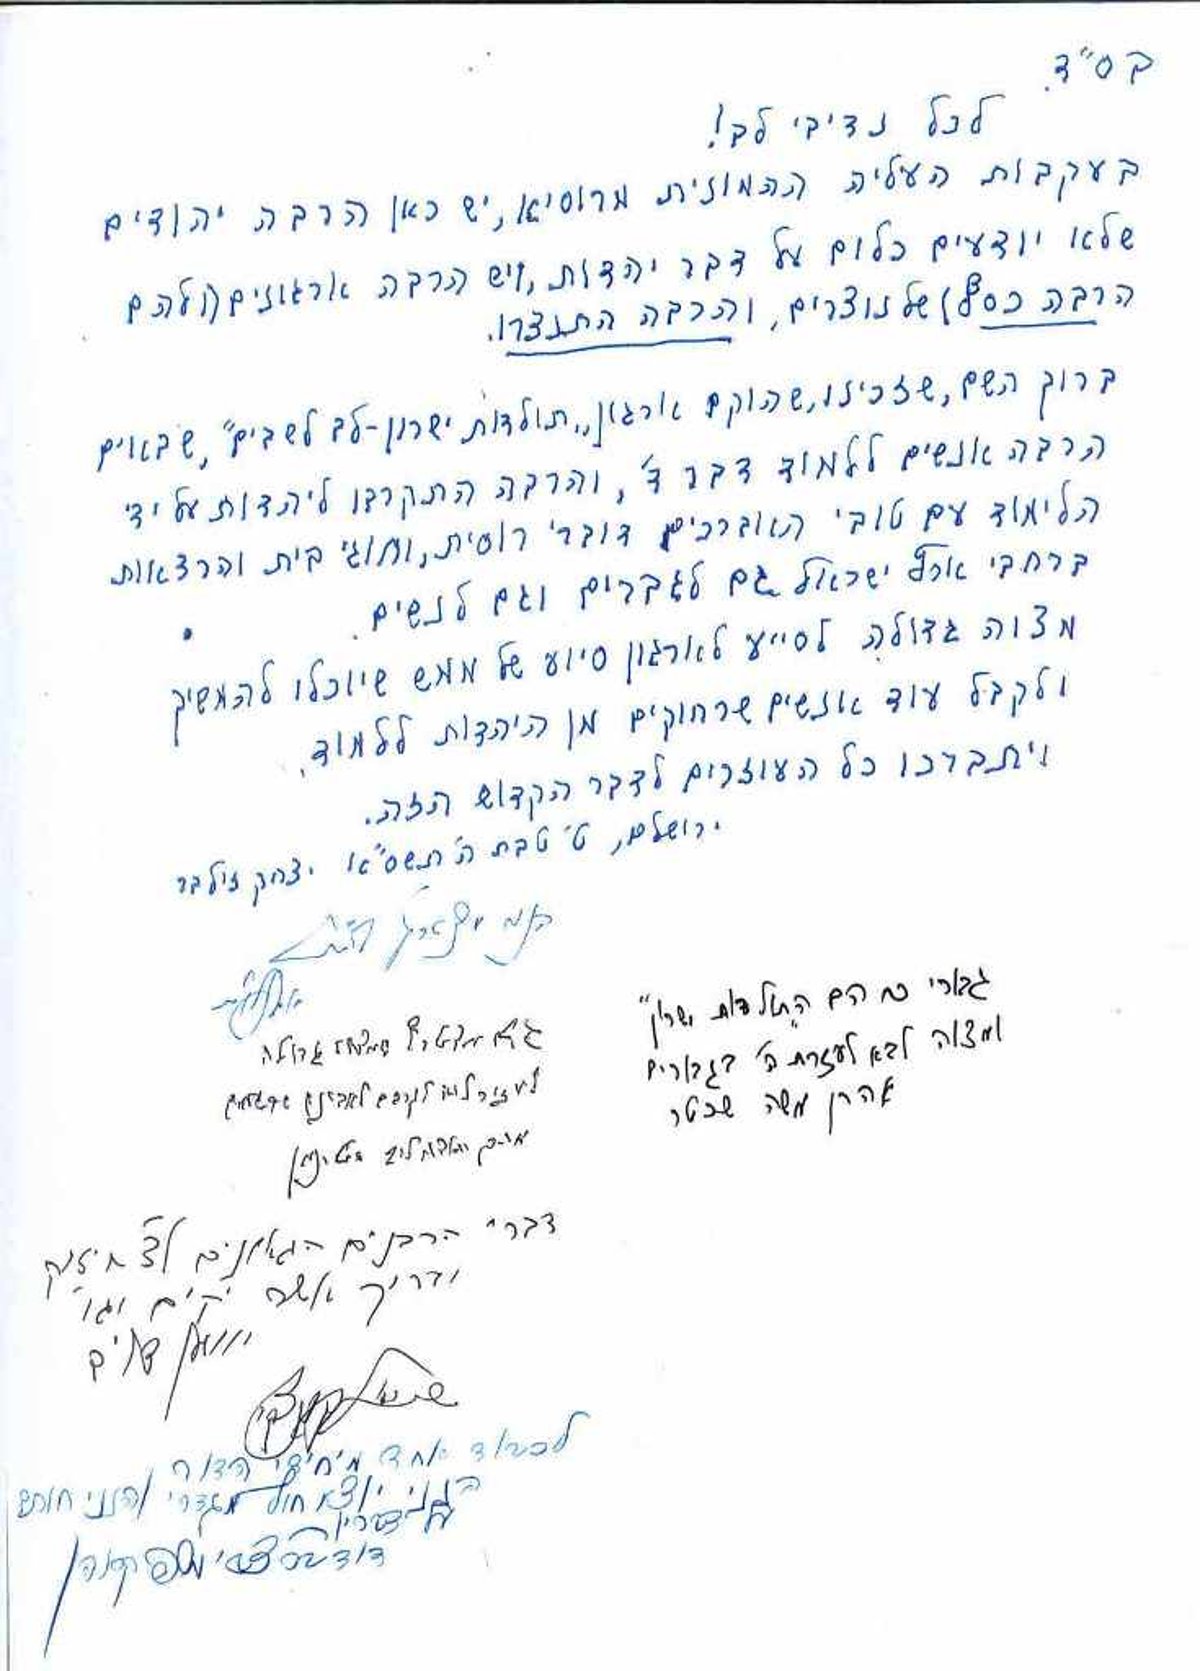 בס"ד.
לכל נדיבי לב!
בעקבות העליה ההמונית מרוסיא, יש כאן הרבה יהודים
שלא יודעים כלום על דבר יהדות, ויש הרבה ארגונים (ולהם
הרבה כסף) של נוצרים, והרבה התנצרו.
ברוך השם, שזכינו, שהוקם ארגון ,,תולדות ישרון-לב לשבים", שבאוים
הרבה אנשים ללמוד דבר ד', והרבה התקרבו ליהדות על ידי
הלימוד עם טובי האברכים דוברי רוסית, וחוגי בית והרצאות
ברחבי ארץ ישראל גם לגברים וגם לנשים.
מצוה גדולה לסייע לארגון סיוע של ממש שיוכלו להמשיך
ולקבל עוד אנשים שרחוקים מן היהדות ללמוד.
ויתברכו כל העוזרים לדבר הקדוש הזה.
ירושלם, ט' טבת ה'תשס"א יצחק זילבר
גבורי כח הם התולדות ישרון"
ומצוה לבא לעזרת ה' בגבורים
אהרן משה שכטר
גם מצטרף שמצוה גדולה
דברי הרבנים הגאונים לצ חיזוק
וברוך אשר יקים וגו'
לכבוד אחד מיחידי הדור
הנני יוצא חוץ מגדרי והנני חותם
דוד